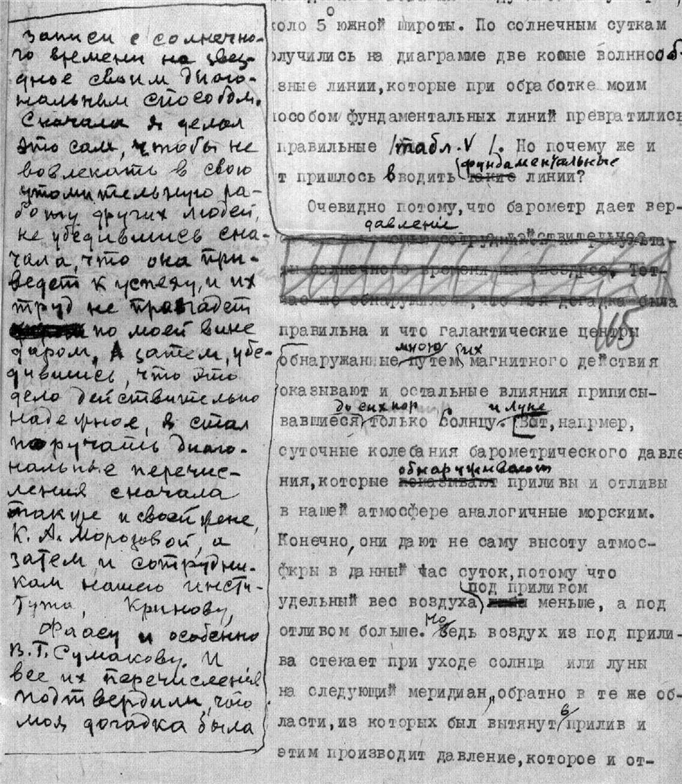 записи с солнечно-
го времени на звез-
дное своим диаго-
нальным способом.
Сначала я делал
это сам, чтобы не
вовлекать в свою
утомительную ра-
боту других людей,
не убедившись сна-
чала, что она при-
ведет к успеху, и их
труд не пропадет
по моей вине
даром, А затем, убе-
дившись, что это
дело действительно
надежное, я стал
поручать диаго-
нальные перечис-
ления сначала
также и своей жене,
К. А. Морозовой, а
затем и сотрудни-
кам нашего инсти-
тута, Кринову,
Фаасу и особенно
В.Г. Сумакову. И
все их перечисления
подтвердили, что
моя догадка была
коло 5° южной широты. По солнечным суткам
олучились на диаграмме две косые волнооб-
зные линии, которые при обработке моим
пособом фундаментальных линий превратились
правильные /табл. V /. Но почему же и
фундаментальные
т пришлось вводить такие линии?
Очевидно потому, что барометр дает вер-
давление
солнечного времени на звездное, Тот-
час же обнаружилось, что моя догадка была
105
правильна и что галактические центры
мною их
обнаружанные путем магнитного действия
оказывают и остальные влияния приписы-
до сих пор и Луне
вавшиеся только Солнцу. Вот, напрмер,
суточные колебания барометрического давле
обнаруживают
ния, которые показывают приливы и отливы
в нашей атмосфере аналогичные морским.
Конечно, они дают не саму высоту атмос-
феры в данный час суток, потому что
под приливом
удельный вес воздуха меньше, а под
отливом больше. Но ведь воздух из под прили-
ва стекает при уходе солнца или луны
на следующий меридиан, обратно в те же об-
ласти, из которых был вытянут в прилив и
этим производит давление, которое и от-